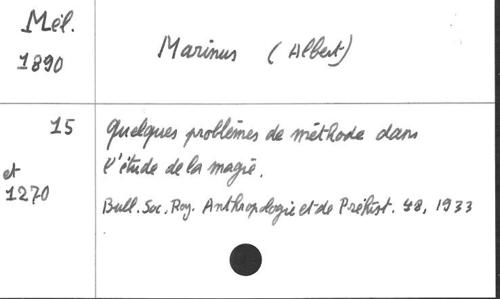 Mél.
1890
Marinus (Albert)
15
et
1270
Quelques problèmes de méthode dans
l'étude de la magie.
Bull. Soc. Roy. Anthropologie et de Préhist. 48, 1933